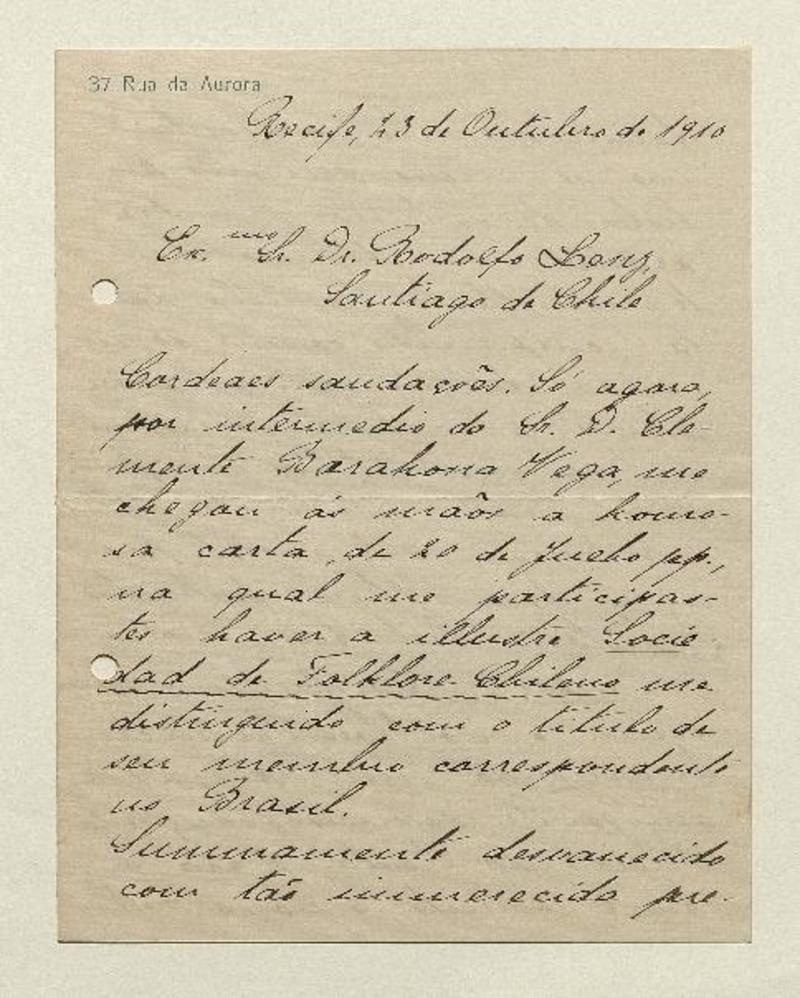 37 Rua da Aurora
Recife, 23 de Outubro de 1910
Ex.mo Sr. Dr. Rodolfo Lenz,
Santiago de Chile
Cordeaes saudações. Só agora,
por intermedio do Sr. D. Cle-
mente Barahona Vega, me
chegou ás mãos a honro-
sa carta, de 20 de Julho pp.,
na qual me participas-
tes haver a illustre Socie
dad de Folklore Chileno me
distinguido com o titulo de
seu membro correspondente
no Brasil.
Summamente desvanecido
com tão immerecido pre-